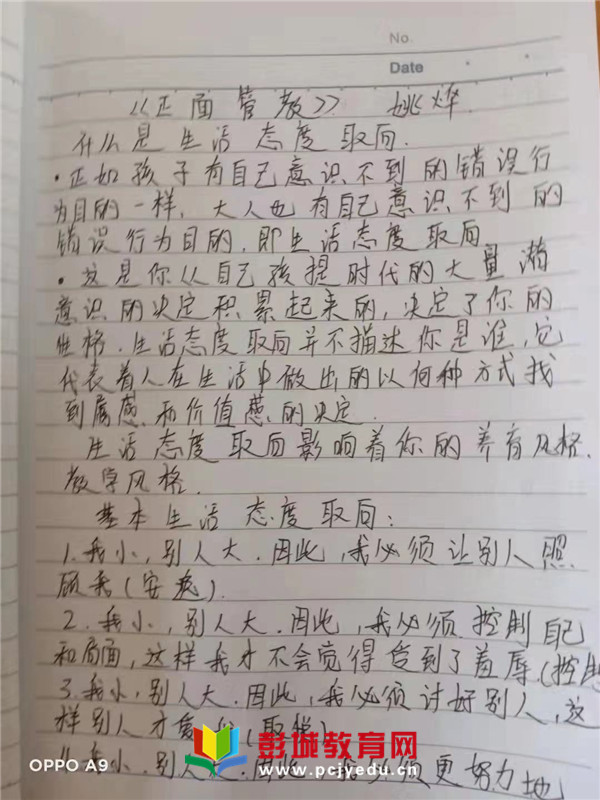 No.
Date
《正面管教》 姚烨
什么是生活态度取向.
·正如孩子有自己意识不到的错误行
为目的一样,大人也有自己意识不到的
错误行为目的.即生活态度取向
·这是你从自己孩提时代的大量潜
意识的决定积累起来的,决定了你的
性格.生活态度取向并不描述你是谁,它
代表着人在生活中做出的以何种方式找
到属感和价值感的决定.
生活态度取向影响着你的养育风格.
教学风格.
基本生活态度取向:
1.我小,别人大.因此,我必须让别人照
顾我(安逸)
2.我小,别人大.因此,我必须控制自己
和局面,这样我才不会觉得受到了羞辱(控制
3.我小,别人大.因此,我必须讨好别人,这
样别人才爱(取悦)
4.我小.别人大.因此 必须更努力地
彭城教育网
www.pcjyedu.cn
OPPO A9